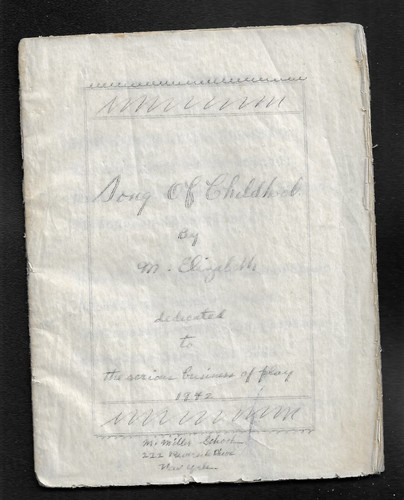 Song Of Childhood
By
M. Elizabeth
dedicated
to
the serious business of play
1942
M. Miller School
222
New York